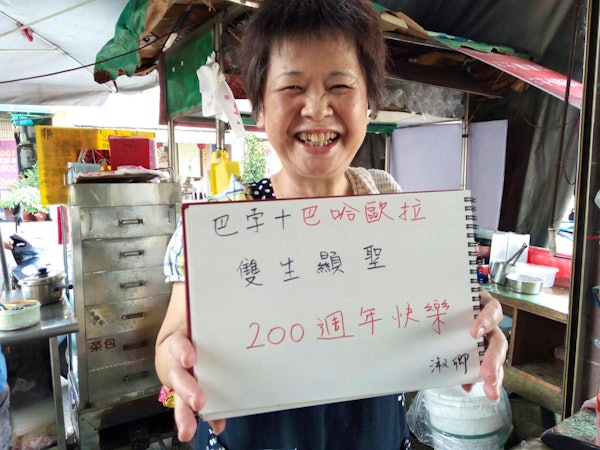 巴孛+巴哈歐拉
雙生顯聖
200週年快樂
淑卿
菜包